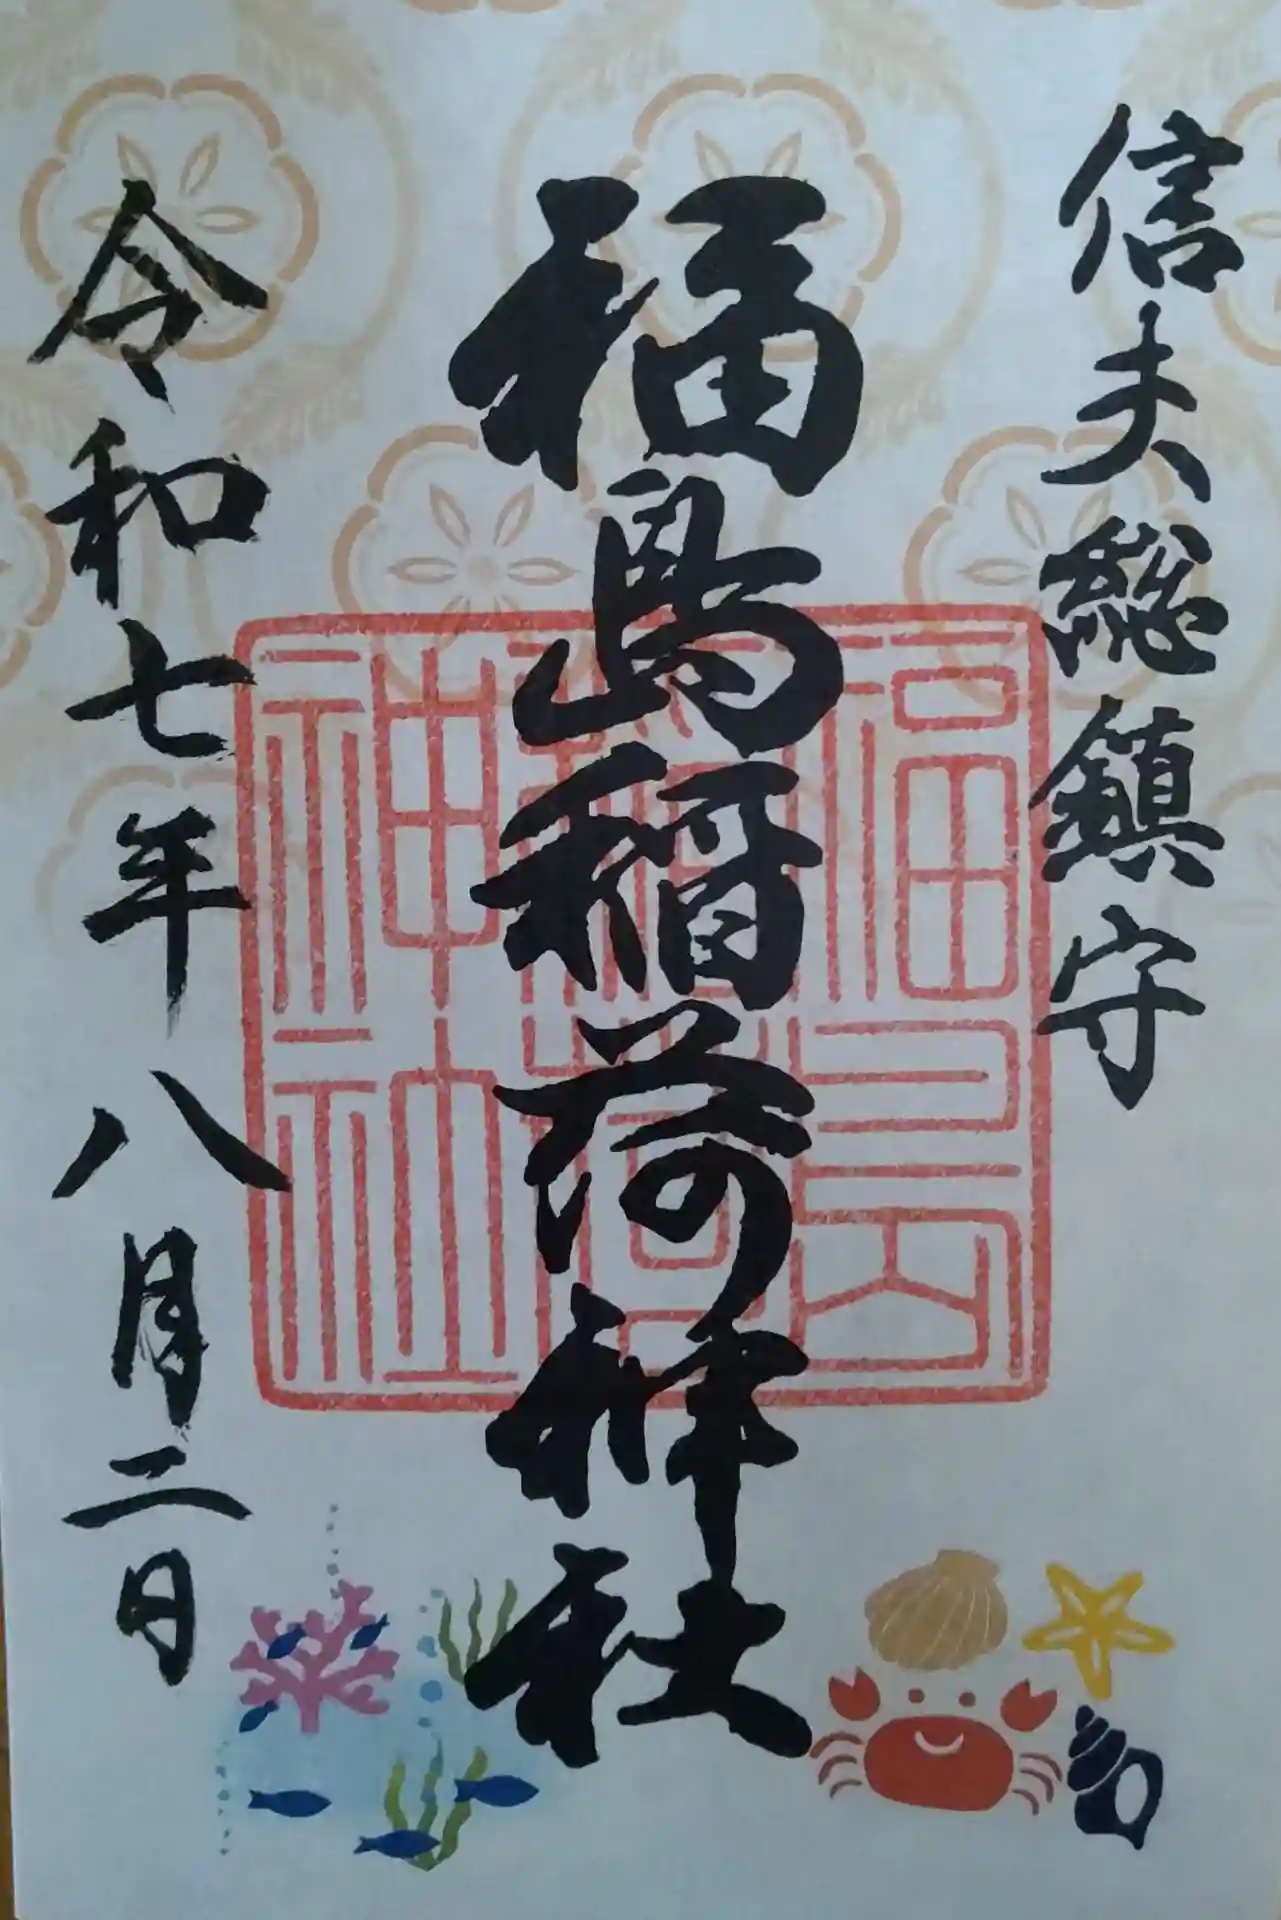 信夫総鎮守
福島稲荷神社
福島
稲荷
神社
令和七年八月二日